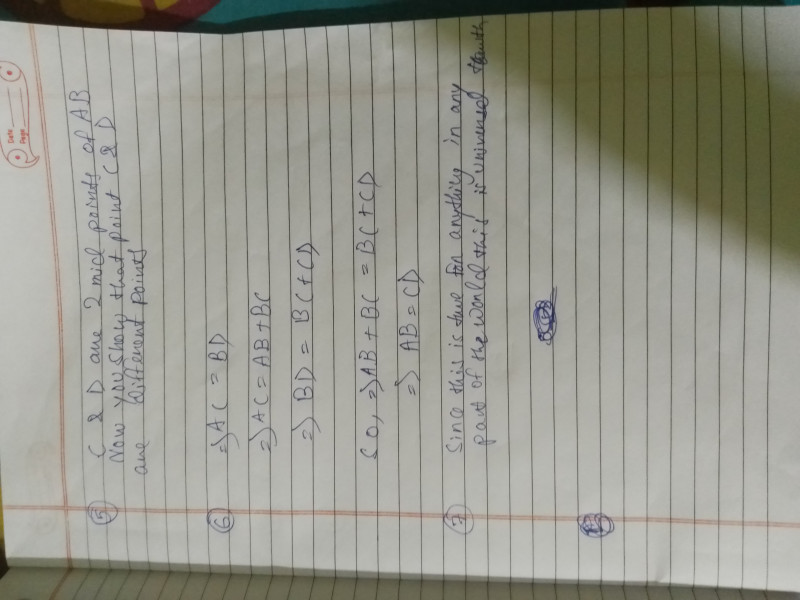 Date
Page
⑤ C & D are 2 mid points of AB
Now you show that point C & D
are Different points
⑥ => AC = BD
=> AC = AB + BC
=> BD = BC + CD
SO, => AB + BC = BC + CD
=> AB = CD
⑦ Since this is true for anything in any
part of the world this is universal truth